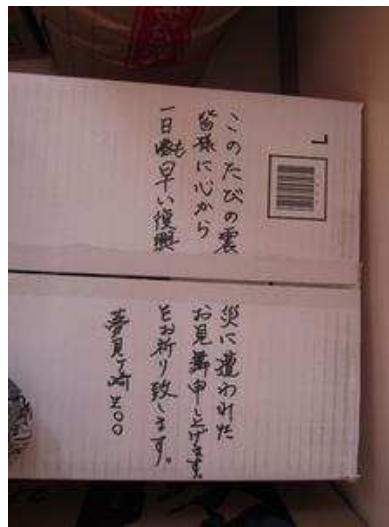 このたびの震災に遭われた
皆様に心からお見舞申し上げます。
一日も早い復興をお祈り致します。
夢見ヶ崎ZOO